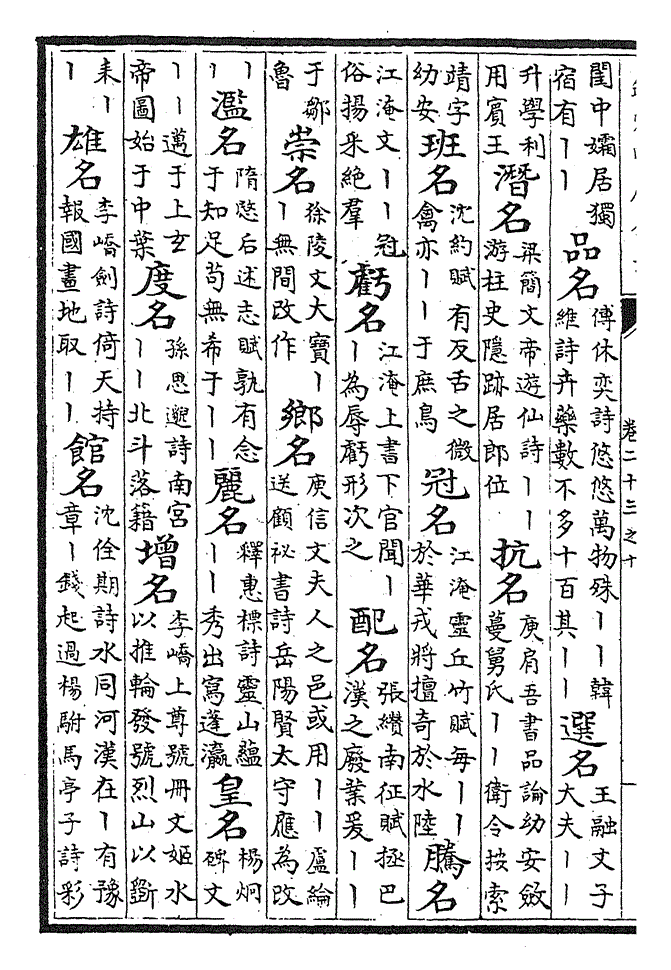 卷二十三之十
閨中孀居獨宿有丨丨品名傅休奕詩悠悠萬物殊丨丨韓維詩卉藥數不多十百其丨丨選名王融文子大夫丨丨
升學利用賓王潛名梁簡文帝遊仙詩丨丨游柱史隱跡居郎位抗名庾肩吾書品論幼安斂蔓舅氏丨丨衛令按索
靖字幼安班名沈約賦有反舌之微禽亦丨丨于庶鳥冠名江淹靈丘竹賦每丨丨於華戎將擅奇於水陸騰名
江淹文丨丨冠俗揚采絕羣虧名江淹上書下官聞丨丨為辱虧形次之配名張纘南征賦拯巴漢之廢業爰丨丨
于鄒魯崇名徐陵文大寶丨丨無間改作鄉名庾信文夫人之邑或用丨丨盧綸送顧祕書詩岳陽賢太守應為改
丨丨濫名隋愍后述志賦孰有念于知足茍無希于丨丨麗名釋惠標詩靈山蘊丨丨秀出寫蓬瀛皇名楊炯碑文
丨丨邁于上玄帝圖始于中葉度名孫思邈詩南宮丨丨北斗落籍增名李嶠上尊號冊文姬水以推輪發號烈山以斵
耒丨丨雄名李嶠劍詩倚天持報國畫地取丨丨館名沈佺期詩水同河漢在丨有豫章丨錢起過楊駙馬亭子詩彩